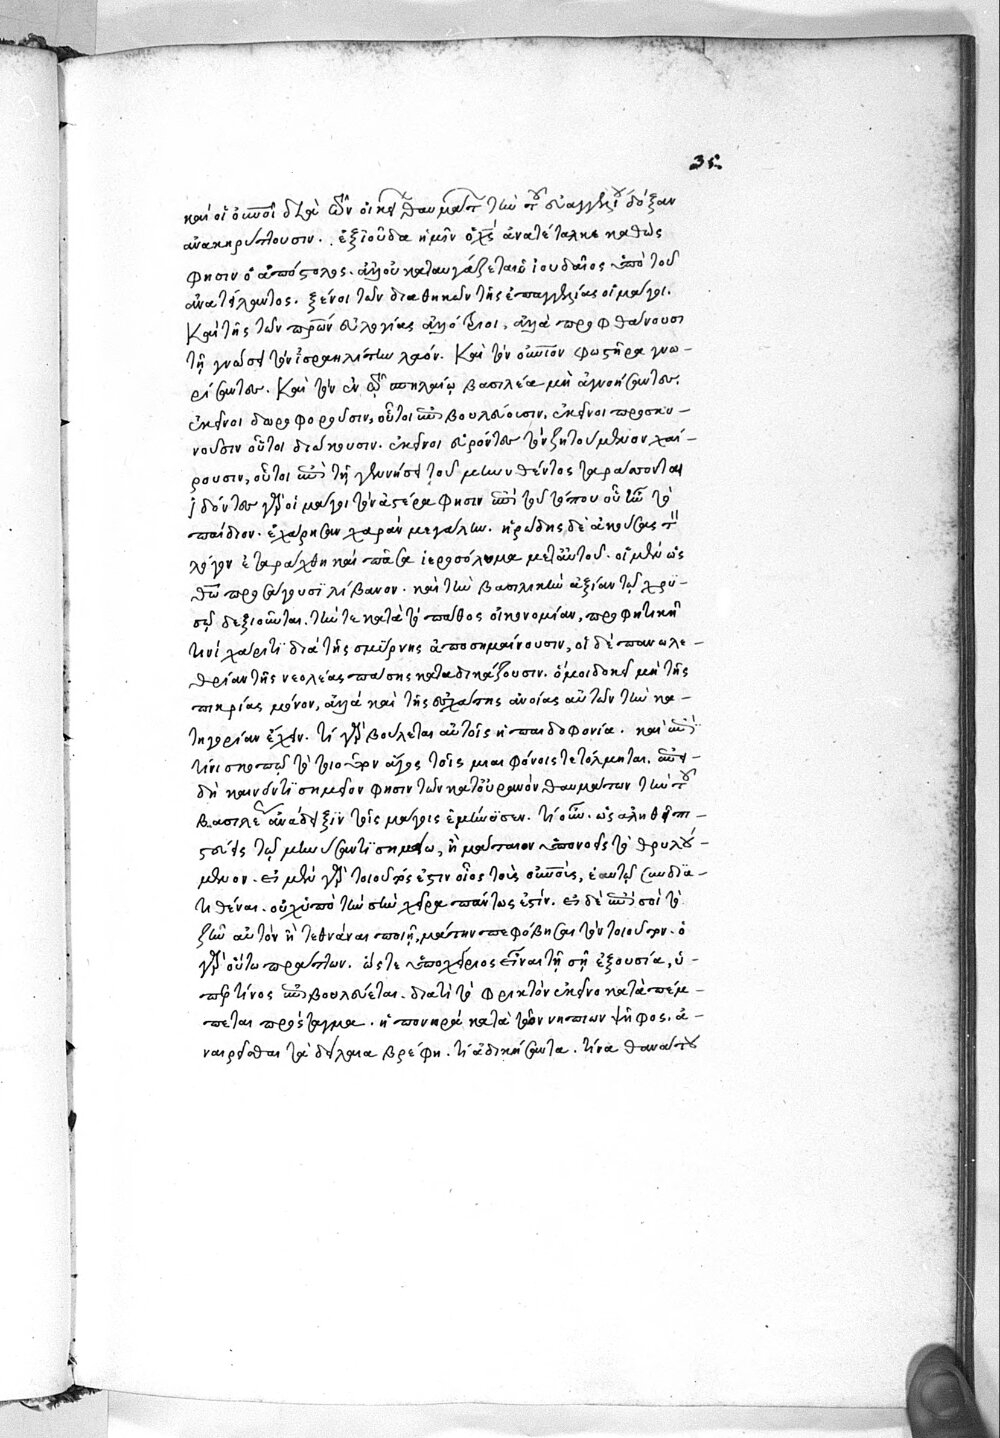 35
καὶ οἱ οὐνοὶ διὰ τῶν οἰκείων θαυμάτων τὴν τοῦ εὐαγγελίου δόξαν
ἀνακηρύττουσιν. ἐξ ἰούδα ἡμῖν ὁ χς ἀνατέταλκε καθώς
φησιν ὁ ἀπόστολος. ἀλλ' οὐ καταυγάζεται ὁ ἰουδαῖος ὑπὸ τοῦ
ἀνατείλαντος. ξένοι τῶν διαθηκῶν τῆς ἐπαγγελίας οἱ μάγοι.
καὶ τῆς τῶν πρων εὐλογίας ἀλλότριοι, ἀλλὰ προφθάνουσι
τῇ γνώσει τὸν ἰσραηλίτην λαόν. καὶ τὸν οὐνιον φωστῆρα γνω-
ρίσαντες. καὶ τὸν ἐν τῷ σπηλαίῳ βασιλέα μὴ ἀγνοήσαντες.
ἐκεῖνοι δωροφοροῦσιν, οὗτοι ἐπιβουλεύουσιν. ἐκεῖνοι προσκυ-
νοῦσιν οὗτοι διώκουσιν. ἐκεῖνοι εὑρόντες τὸν ζητούμενον χαί-
ρουσιν, οὗτοι ἐπὶ τῇ γεννήσει τοῦ μηνυθέντος ταράσσονται
ἰδόντες γὰρ οἱ μάγοι τὸν ἀστέρα φησιν ἐπὶ τοῦ τόπου οὗ ἦν τὸ
παιδίον. ἐχάρησαν χαρὰν μεγάλην. ἡρώδης δὲ ἀκούσας τὸν
λόγον ἐταράχθη καὶ πᾶσα ἱεροσόλυμα μετ' αὐτοῦ. οἱ μὲν ὡς
θῶ προσάγουσι λίβανον. καὶ τὴν βασιλικὴν ἀξίαν τῷ χρυ-
σῷ δεξιοῦνται. τήν τε κατὰ τὸ πάθος οἰκονομίαν, προφητικῇ
τινὶ χάριτι διὰ τῆς σμύρνης ἀποσημαίνουσιν, οἱ δὲ πανωλε-
θρίαν τῆς νεολέας πάσης καταδικάζουσιν. ὅ μοι δοκεῖ μὴ τῆς
πικρίας μόνον, ἀλλὰ καὶ τῆς ἐσχάτης ἀνοίας αὐτῶν τὴν κα-
τηγορίαν ἔχειν. τί γὰρ βούλεται αὐτοῖς ἡ παιδοφονία. καὶ ἐπὶ
τίνι σκοπῷ τὸ τοιοῦτον ἄγος τοῖς μιαιφόνοις τετόλμηται. ἐπει-
δὴ καινόν τι σημεῖον φησιν τῶν κατ' οὐρανὸν θαυμάτων τὴν τοῦ
βασιλέως ἀνάδειξιν τοῖς μάγοις ἐμήνυσεν. τί οὖν. ὡς ἀληθεῖ πι-
στεύεις τῷ μηνύσαντι σημείῳ, ἢ μάταιον ὑπονοεῖς τὸ θρυλού-
μενον. εἰ μὲν γὰρ τοιοῦτός ἐστιν οἷος τοὺς οὐνοὺς, ἑαυτῷ συνδια-
τιθέναι. οὐχ ὑπὸ τὴν σὴν χεῖρα πάντως ἐστίν. εἰ δὲ ἐπὶ σοὶ τὸ
ζῆν αὐτὸν ἢ τεθνάναι ποιῇ, μάτην πεφόβησαι τὸν τοιοῦτον. ὁ
γὰρ οὕτω πράττων. ὥστε ὑποχείριος εἶναι τῇ σῇ ἐξουσίᾳ, ὑ-
πὲρ τίνος ἐπιβουλεύεται. διατί τὸ φρικτὸν ἐκεῖνο καταπέμ-
πεται πρόσταγμα. ἡ πονηρὰ κατὰ τῶν νηπίων ψῆφος. ἀ-
ναιρεῖσθαι τὰ δείλαια βρέφη. τί ἀδικήσαντα. τίνα θανάτου